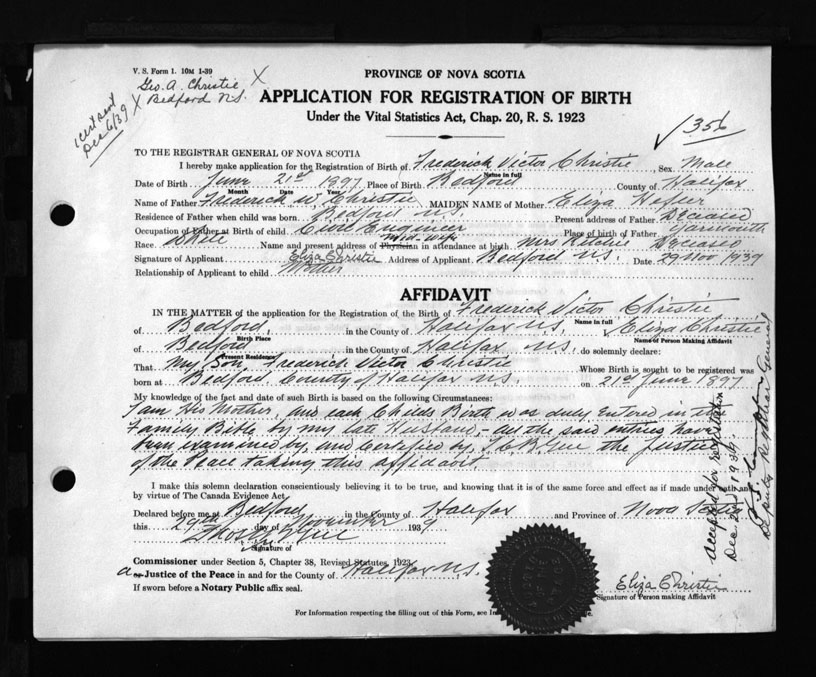 V. S. Form 1. 10M 1-39
Geo. A. Christie X
X Bedford N.S.
cert sent
Dec 6/39
PROVINCE OF NOVA SCOTIA
APPLICATION FOR REGISTRATION OF BIRTH
Under the Vital Statistics Act, Chap. 20, R. S. 1923
✓ 356
TO THE REGISTRAR GENERAL OF NOVA SCOTIA
I hereby make application for the Registration of Birth of Frederick Victor Christie, Sex Male
Name in full
Date of Birth June 21st 1897 Place of Birth Bedford County of Halifax
Month Date Year
Name of Father Frederick W. Christie MAIDEN NAME of Mother Eliza Hefler
Residence of Father when child was born Bedford N.S. Present address of Father Deceased
Occupation of Father at Birth of child Civil Engineer Place of birth of Father Yarmouth
Race White Name and present address of Physician Mid-wife in attendance at birth Mrs Ritchie Deceased
Signature of Applicant Eliza Christie Address of Applicant Bedford N.S. Date 29 Nov 1939
Relationship of Applicant to child Mother
AFFIDAVIT
IN THE MATTER of the application for the Registration of the Birth of Frederick Victor Christie
Name in full
of Bedford, in the County of Halifax N.S. I, Eliza Christie
Birth Place Name of Person Making Affidavit
of Bedford in the County of Halifax N.S. do solemnly declare:
Present Residence
That My Son Frederick Victor Christie Whose Birth is sought to be registered was
born at Bedford, County of Halifax N.S. on 21st June 1897
My knowledge of the fact and date of such Birth is based on the following Circumstances:
I am His Mother, and each Childs Birth was duly Entered in the
Family Bible by my late Husband,- all the said entries have
been examined by, and Certified by, the Justice
of the Peace taking this affidavit
I make this solemn declaration conscientiously believing it to be true, and knowing that it is of the same force and effect as if made under oath and
by virtue of The Canada Evidence Act.
Declared before me at Bedford in the County of Halifax and Province of Nova Scotia
this 29th day of November 1939
Signature of
Commissioner under Section 5, Chapter 38, Revised Statutes, 1923
a or Justice of the Peace in and for the County of Halifax N.S.
If sworn before a Notary Public affix seal.
Eliza Christie
Signature of Person making Affidavit
For Information respecting the filling out of this Form, see In
Accepted for registration
Dec 2nd 1939.
Deputy Registrar General